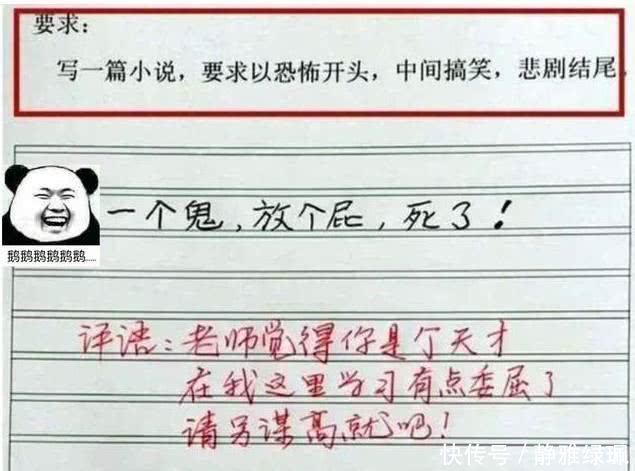 要求:
写一篇小说，要求以恐怖开头，中间搞笑，悲剧结尾，
一个鬼，放个屁，死了！
鹅鹅鹅鹅鹅鹅……
评语：老师觉得你是个天才
在我这里学习有点委屈了
请另谋高就吧！
快传号／静雅绿珮